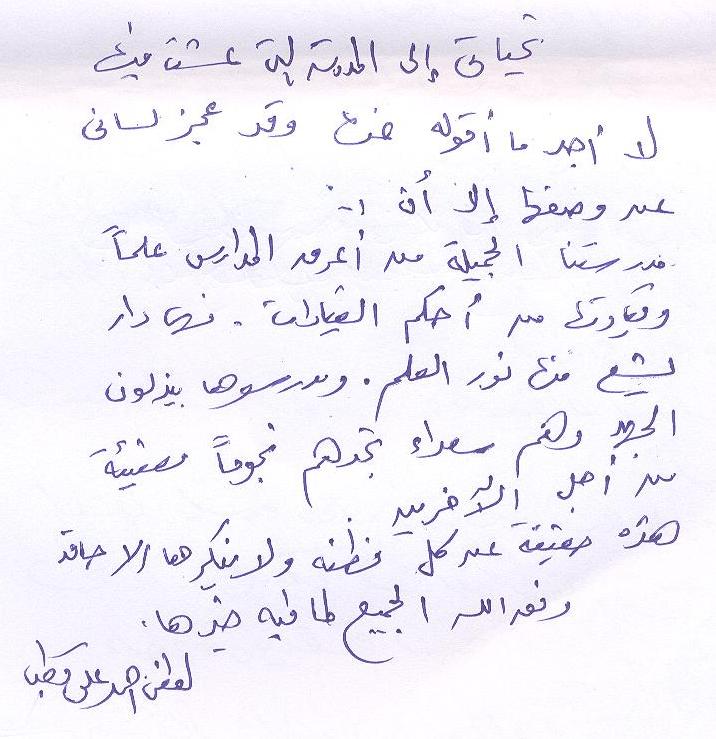 تحياتى إلى المدرسة التى عشت فيها
لا أجد ما أقوله عنها وقد عجز لسانى
عن وصفها إلا أن :-
مدرستنا الجميلة من أعرق المدارس علماً
وقيادتها من أحكم القيادات . فهى دار
يشع منها نور العلم . ومدرسوها يبذلون
الجهد وهم سعداء تجدهم نجوماً مضيئة
من أجل الآخرين
هذه حقيقة عن كل فطنه ولا ينكرها الا حاقد
وفق الله الجميع لما فيه خيرها .
أحمد على قطب